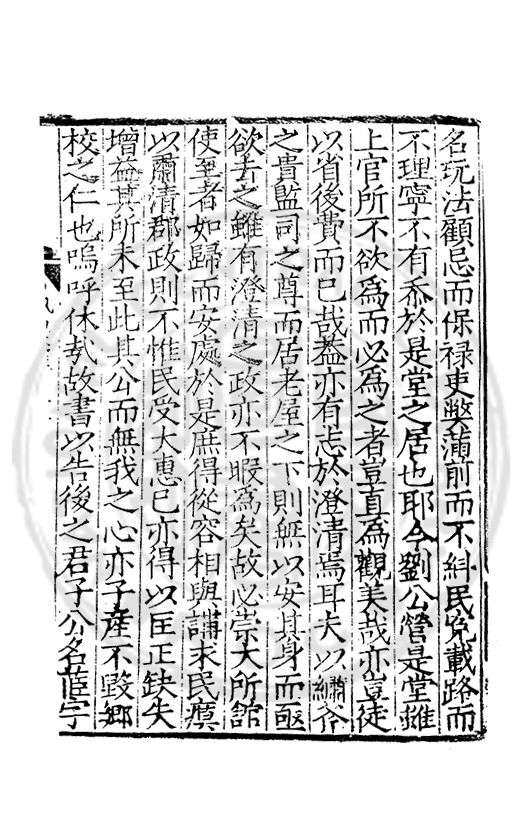 名玩法顧忌而保禄吏弊蒲前而不糾民兔載路而
不理寧不有忝於是堂之居也耶今劉公營是堂雖
上官所不欲爲而必爲之者豈直爲觀美哉亦豈徒
以省後費而已哉葢亦有志於澄清焉耳夫以繡斧
之貴監司之尊而居老屋之下則無以安其身而亟
欲去之雖有澄清之政亦不暇爲矣故必崇大所舘
使至者如歸而安處於是庶得從容相與講求民瘼
以肅清郡政則不惟民受大惠巳亦得以匡正缺失
增益其所未至此其公而無我之心亦子産不毀鄉
校之仁也嗚呼休㢤故書以告後之君子公名 字